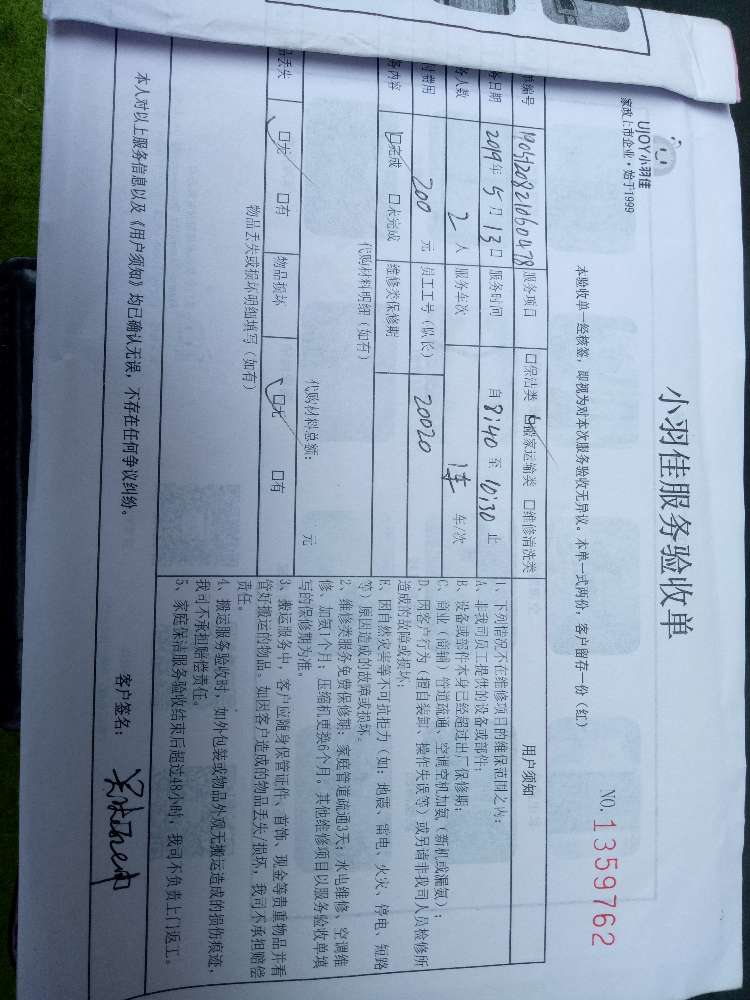 UJOY小羽佳
家政上市企业·始于1999
小羽佳服务验收单
本验收单一经核签，即视为对本次服务验收无异议。本单一式两份，客户留存一份（红）
NO. 1359762
编号 1905120821060478 服务项目 口保洁类 口搬家运输类 口维修清洗类
日期 2019年5月13日 服务时间 自8:40至10:30止
人数 2人 服务车次 1车 车/次
费用 200元 员工工号（队长） 20020
内容 口完成 口未完成 维修类保修期
代购材料明细（如有）
代购材料总额： 元
品丢失 口无 口有 物品损坏 口无 口有
物品丢失或损坏明细填写（如有）
用户须知
1、下列情况不在维修项目的维保范围之内：
A、非我司员工提供的设备或部件；
B、设备或部件本身已经超过出厂保修期；
C、商业（商铺）管道疏通、空调空机加氨（新机或漏氨）；
D、因客户行为（擅自装卸、操作失误等）或另请非我司人员检修所
造成的故障或损坏；
E、因自然灾害等不可抗拒力（如：地震、雷电、火灾、停电、短路
等）原因造成的故障或损坏。
2、维修类服务免费保修期：家庭管道疏通3天；水电维修、空调维
修、加氨1个月；压缩机更换6个月。其他维修项目以服务验收单填
写的保修期为准。
3、搬运服务中，客户应随身保管证件、首饰、现金等贵重物品并看
管好搬运的物品。如因客户造成的物品丢失/损坏，我司不承担赔偿
责任。
4、搬运服务验收时，如外包装或物品外观无搬运造成的损伤痕迹，
我司不承担赔偿责任。
5、家庭保洁服务验收结束后超过48小时，我司不负责上门返工。
本人对以上服务信息以及《用户须知》均已确认无误，不存在任何争议纠纷。
客户签名：